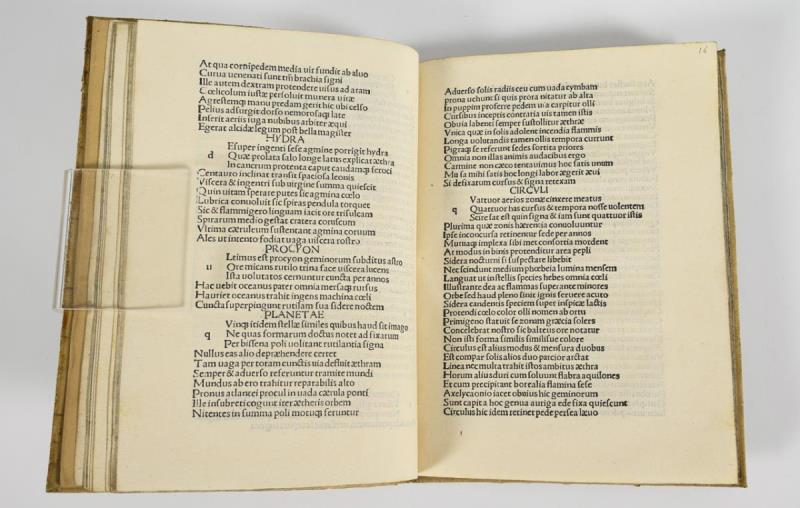 At qua cornipedem media uir fundit ab aluo
Curua uenenati sunt tibi brachia signi
Ille autem dextram protendere uisus ad aram
Cœlicolum iustæ persoluit munera uitæ
Agrestemq; manu prædam gerit hic ubi celso
Pelius adsurgit dorso nemorosaq; late
Inserit aeriis iuga nubibus arbiter æqui
Egerat alcidæ legum post bella magister
HYDRA
Esuper ingenti sese agmine porrigit hydra
d Quæ prolata salo longe latus explicat æthra
In cancrum protenta caput caudamq; feroci
Centauro inclinat transit spaciosa leonis
Viscera & ingenti sub uirgine summa quiescit
Quin uitam sperare putes sic agmina cœlo
Lubrica conuoluit sic spiras pendula torquet
Sic & flammigero linguam iacit ore trisulcam
Spirarum medio gestat cratera coruscum
Vltima cæruleum sustentant agmina coruum
Ales ut intento fodiat uaga uiscera rostro
PROCYON
Ltimus est procyon geminorum subditus astro
u Ore micans rutilo trina face uiscera lucens
Ista uolutatos cernuntur cuncta per annos
Hac uebit oceanus pater omnia mersaq; rursus
Hauriet oceanus trahit ingens machina cœli
Cuncta superpingunt rutilam sua sidere noctem
PLANETAE
Vinq; itidem stellæ similes quibus haud sit imago
q Ne quas formarum doctus notet ad fixarum
Per bissena poli uolitant rutilantia signa
Nullus eas alio depræhendere certet
Tam uaga per totam cunctis uia defluit æthram
Semper & aduerso referuntur tramite mundi
Mundus ab ero trahitur reparabilis alto
Pronus atlantei procul in uada cærula ponti
Ille insubreti conguut iter ætheris orbem
Nitentes in summa poli motuq; feruntur
16
Aduerso solis radiis ceu cum uada cymbam
prona uehunt si quis prora nitatur ab alta
In puppim proferre pedem uia carpitur olli
Cursibus inceptis contraria uis tamen istis
Obuia labenti semper sustollitur æthræ
Vnica quæ in solis adolent incendia flammis
Longa uolutandis tamen olli tempora currunt
Pigraq; se referunt sedes sortita priores
Omnia non illas animis audacibus ergo
Carmine non cæco tenta uimus hoc satis unum
Musa mihi satis hoc longi labor ægerit æui
Si defixarum cursus & signa retexam
CIRCVLI
Vattuor aerios zonæ cinxere meatus
q Quattuor has cursus & tempora nosse uolentem
Scire fat est quin signa & iam sunt quattuor istis
Plurima quæ zonis hærentia conuoluuntur
Ipse inconcursa retinentur sede per annos
Mutuaq; implexa sibi met consortia mordent
At modus in binis protenditur area pepli
Sidera nocturni si suspectare libebit
Nec scindunt medium phœbeia lumina mensem
Languat ut instellis species hebes omnia cœlo
Illustrante dea ac flammas superante minores
Orbe sed haud pleno sinit ignis feruere acuto
Sidera candentis speciem super inspicæ lactis
Protendi cœlo color olli nomen ab ortu
Primigeno statuit se zonam græcia solers
Concelebrat nostro sic balteus ore notatur
Non isti forma similis similisue colore
Circulus est alius modus & mensura duobus
Est compar solis alios duo parcior arctat
Linea nec multa trahit istos ambitus æthra
Horum alius diri cum soluunt flabra aquilones
Et cum precipitant borealia flamina sese
Axelycaonio iacet obuius hic geminorum
Sunt capita hoc genua auriga ede fixa quiescunt
Circulus hic idem retinet pede persea læuo